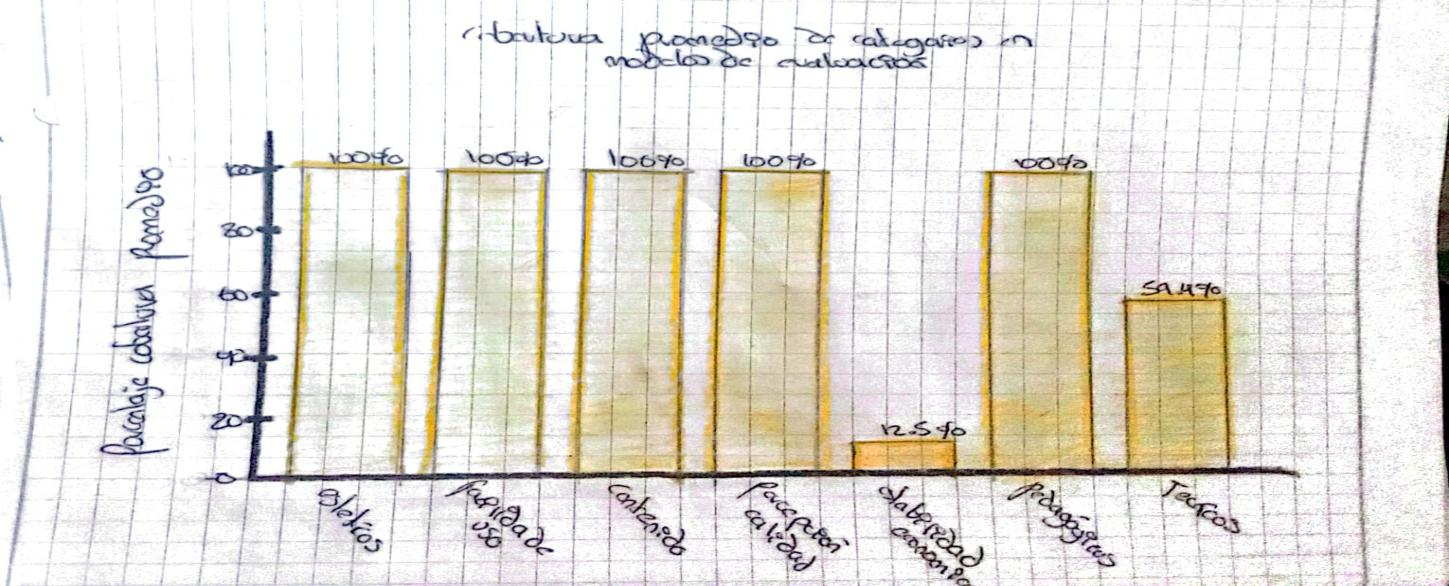 promedio de categorias en
modelos de evaluación
Porcentaje cobertura promedio
100
80
60
40
20
0
100%
100%
100%
100%
12.5%
100%
59.4%
estéticos
facilidad de
uso
Contenido
Percepción
calidad
economica
Pedagógicos
Tecnicos